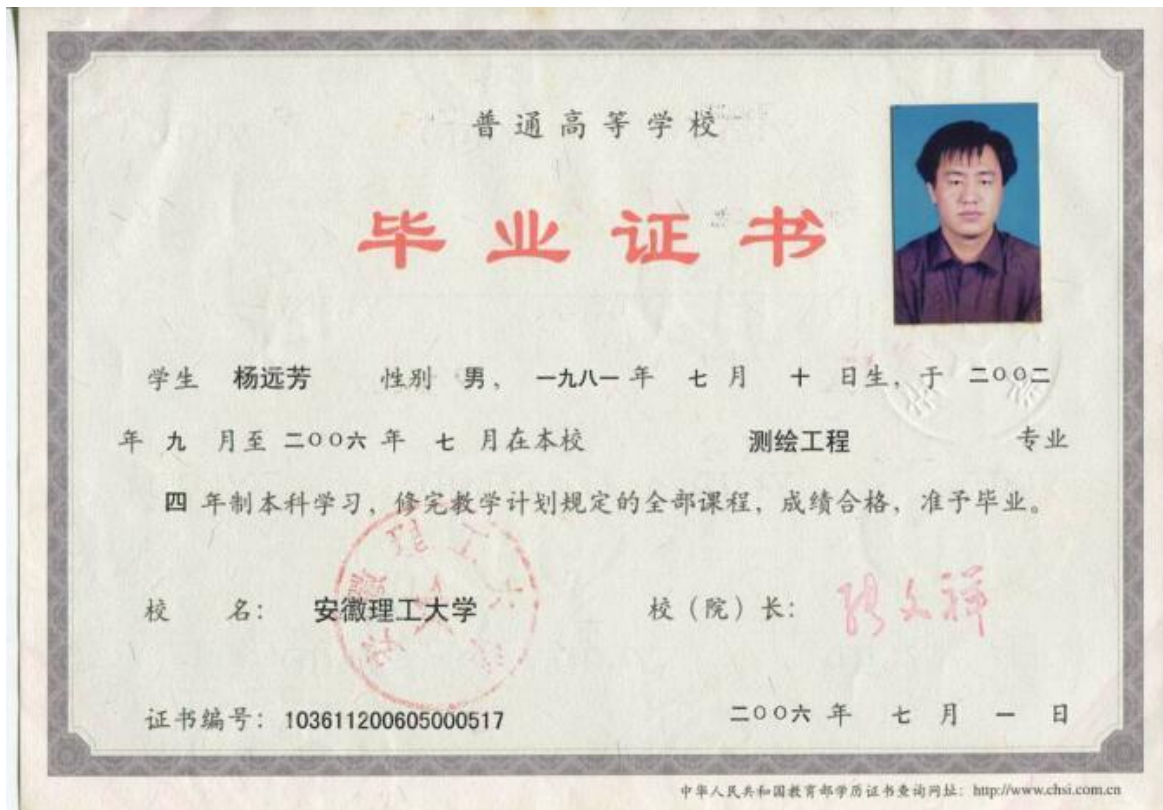 普通高等学校
毕业证书
学生 杨远芳 性别 男，一九八一年 七 月 十 日生，于 二〇〇二
年 九 月至 二〇〇六 年 七 月在本校 测绘工程 专业
四 年制本科学习，修完教学计划规定的全部课程，成绩合格，准予毕业。
校 名： 安徽理工大学 校（院）长： 张文祥
安徽理工大学
证书编号：103611200605000517 二〇〇六 年 七 月 一 日
中华人民共和国教育部学历证书查询网址：http://www.chsi.com.cn